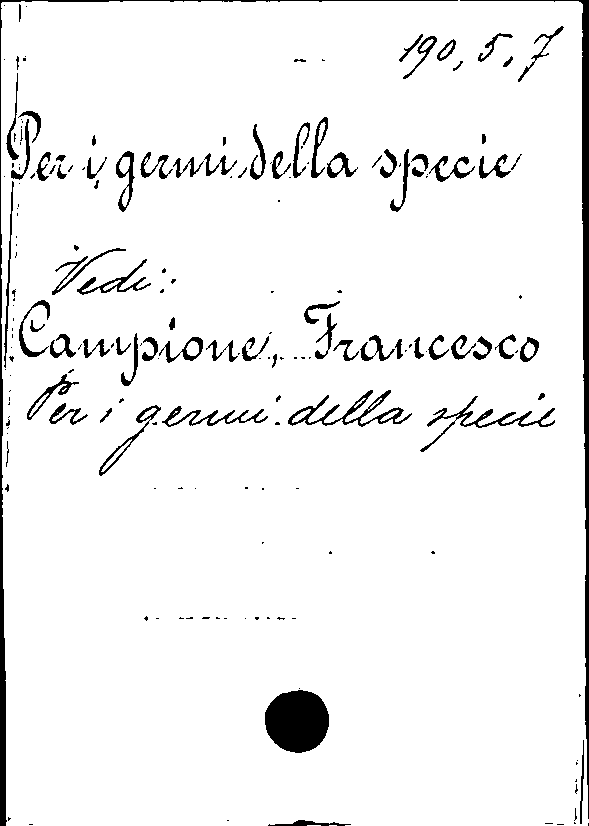 190, 5. 7
Per i germi della specie
Vedi:
Campione, Francesco
Per i germi della specie